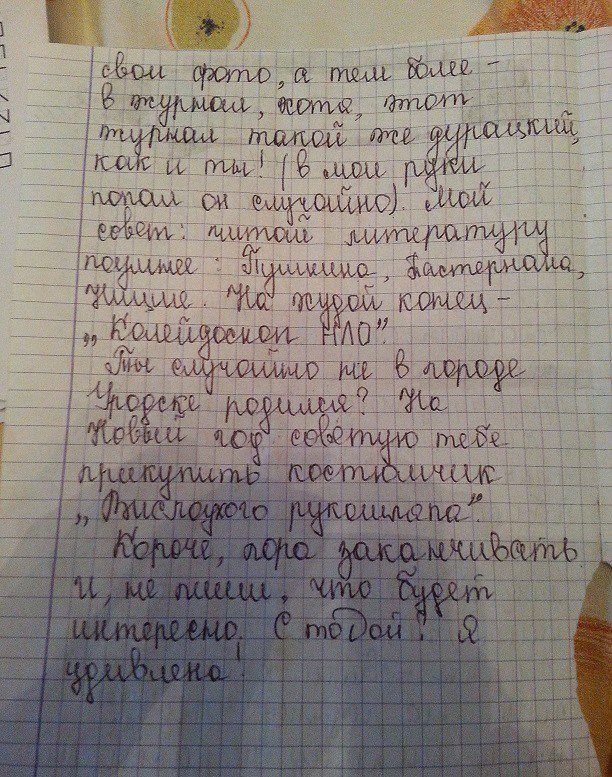 свои фото, а тем более -
в журнал, хотя, этот
журнал такой же дурацкий,
как и ты! (в мои руки
попал он случайно). Мой
совет: читай литературу
поумнее: Пушкина, Пастернака,
Ницше. На худой конец -
„Колейдоскоп НЛО".
Ты случайно не в городе
Уродске родился? На
Новый год советую тебе
прикупить костюмчик
„Вислоухого рукошлёпа".
Короче, пора заканчивать
и, не пиши, что будет
интересно. С тобой? Я
удивлена!